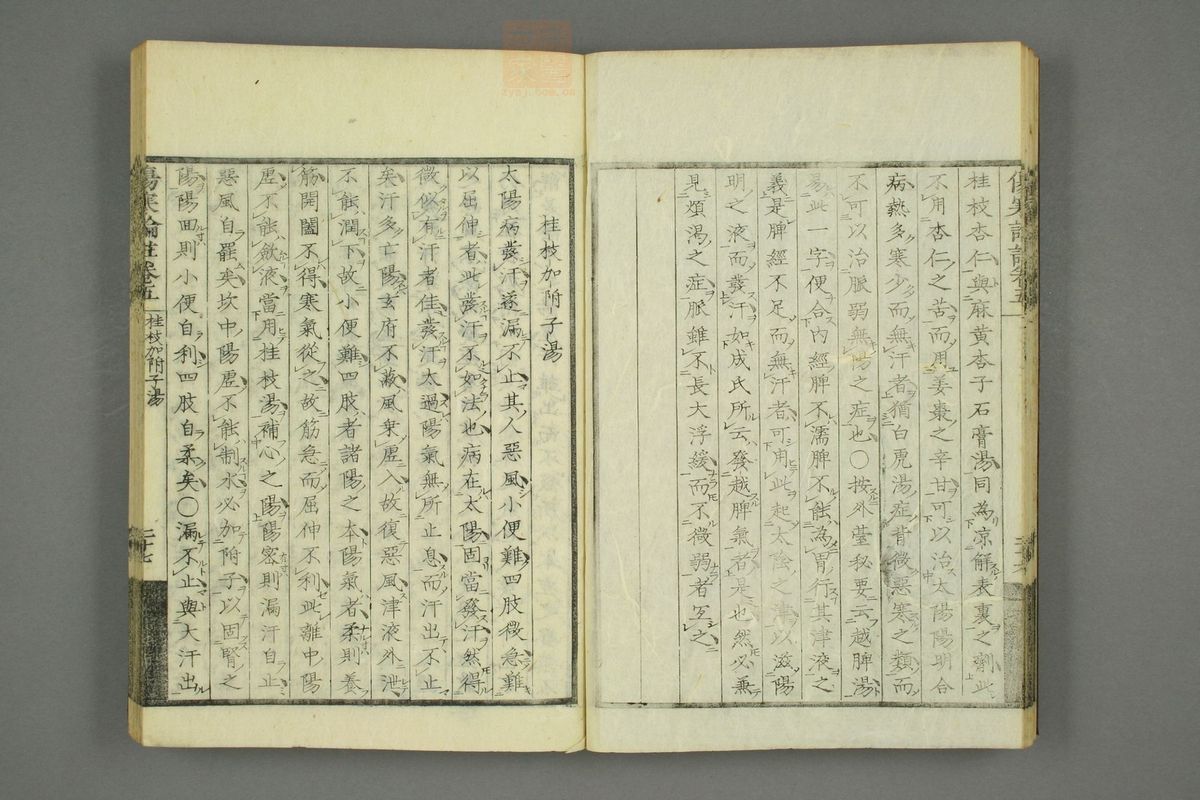 桂枝杏仁與麻黃杏子石膏湯同為凉解表裏之劑此
不用杏仁之苦而用姜棗之辛甘可以治太陽陽明合
病熱多寒少而無汗者猶白虎湯症背微惡寒之類而
不可以治脈弱無陽之症也〇按外臺秘要云越脾湯
易此一字便合內經脾不濡脾不能為胃行其津液之
義是脾經不足而無汗者可用此起太陰之津以滋陽
明之液而發汗如成氏所云發越脾氣者是也然必兼
見煩渴之症脈雖不長大浮緩而不微弱者宐之
桂枝加附子湯
太陽病發汗遂漏不止其人惡風小便難四肢微急難
以屈伸者此發汗不如法也病在太陽固當發汗然得
微似有汗者佳發汗太過陽氣無所止息而汗出不止
矣汗多亡陽玄府不蔽風乗虛入故復惡風津液外泄
不能潤下故小便難四肢者諸陽之本陽氣者柔則養
筋開闔不得寒氣從之故筋急而屈伸不利此離中陽
虛不能斂液當用桂枝湯補心之陽陽密則漏汗自止
惡風自罷矣坎中陽虛不能制水必加附子以固腎之
陽陽回則小便自利四肢自柔矣〇漏不止與大汗出
傷寒論註卷五
桂枝加附子湯
二十七